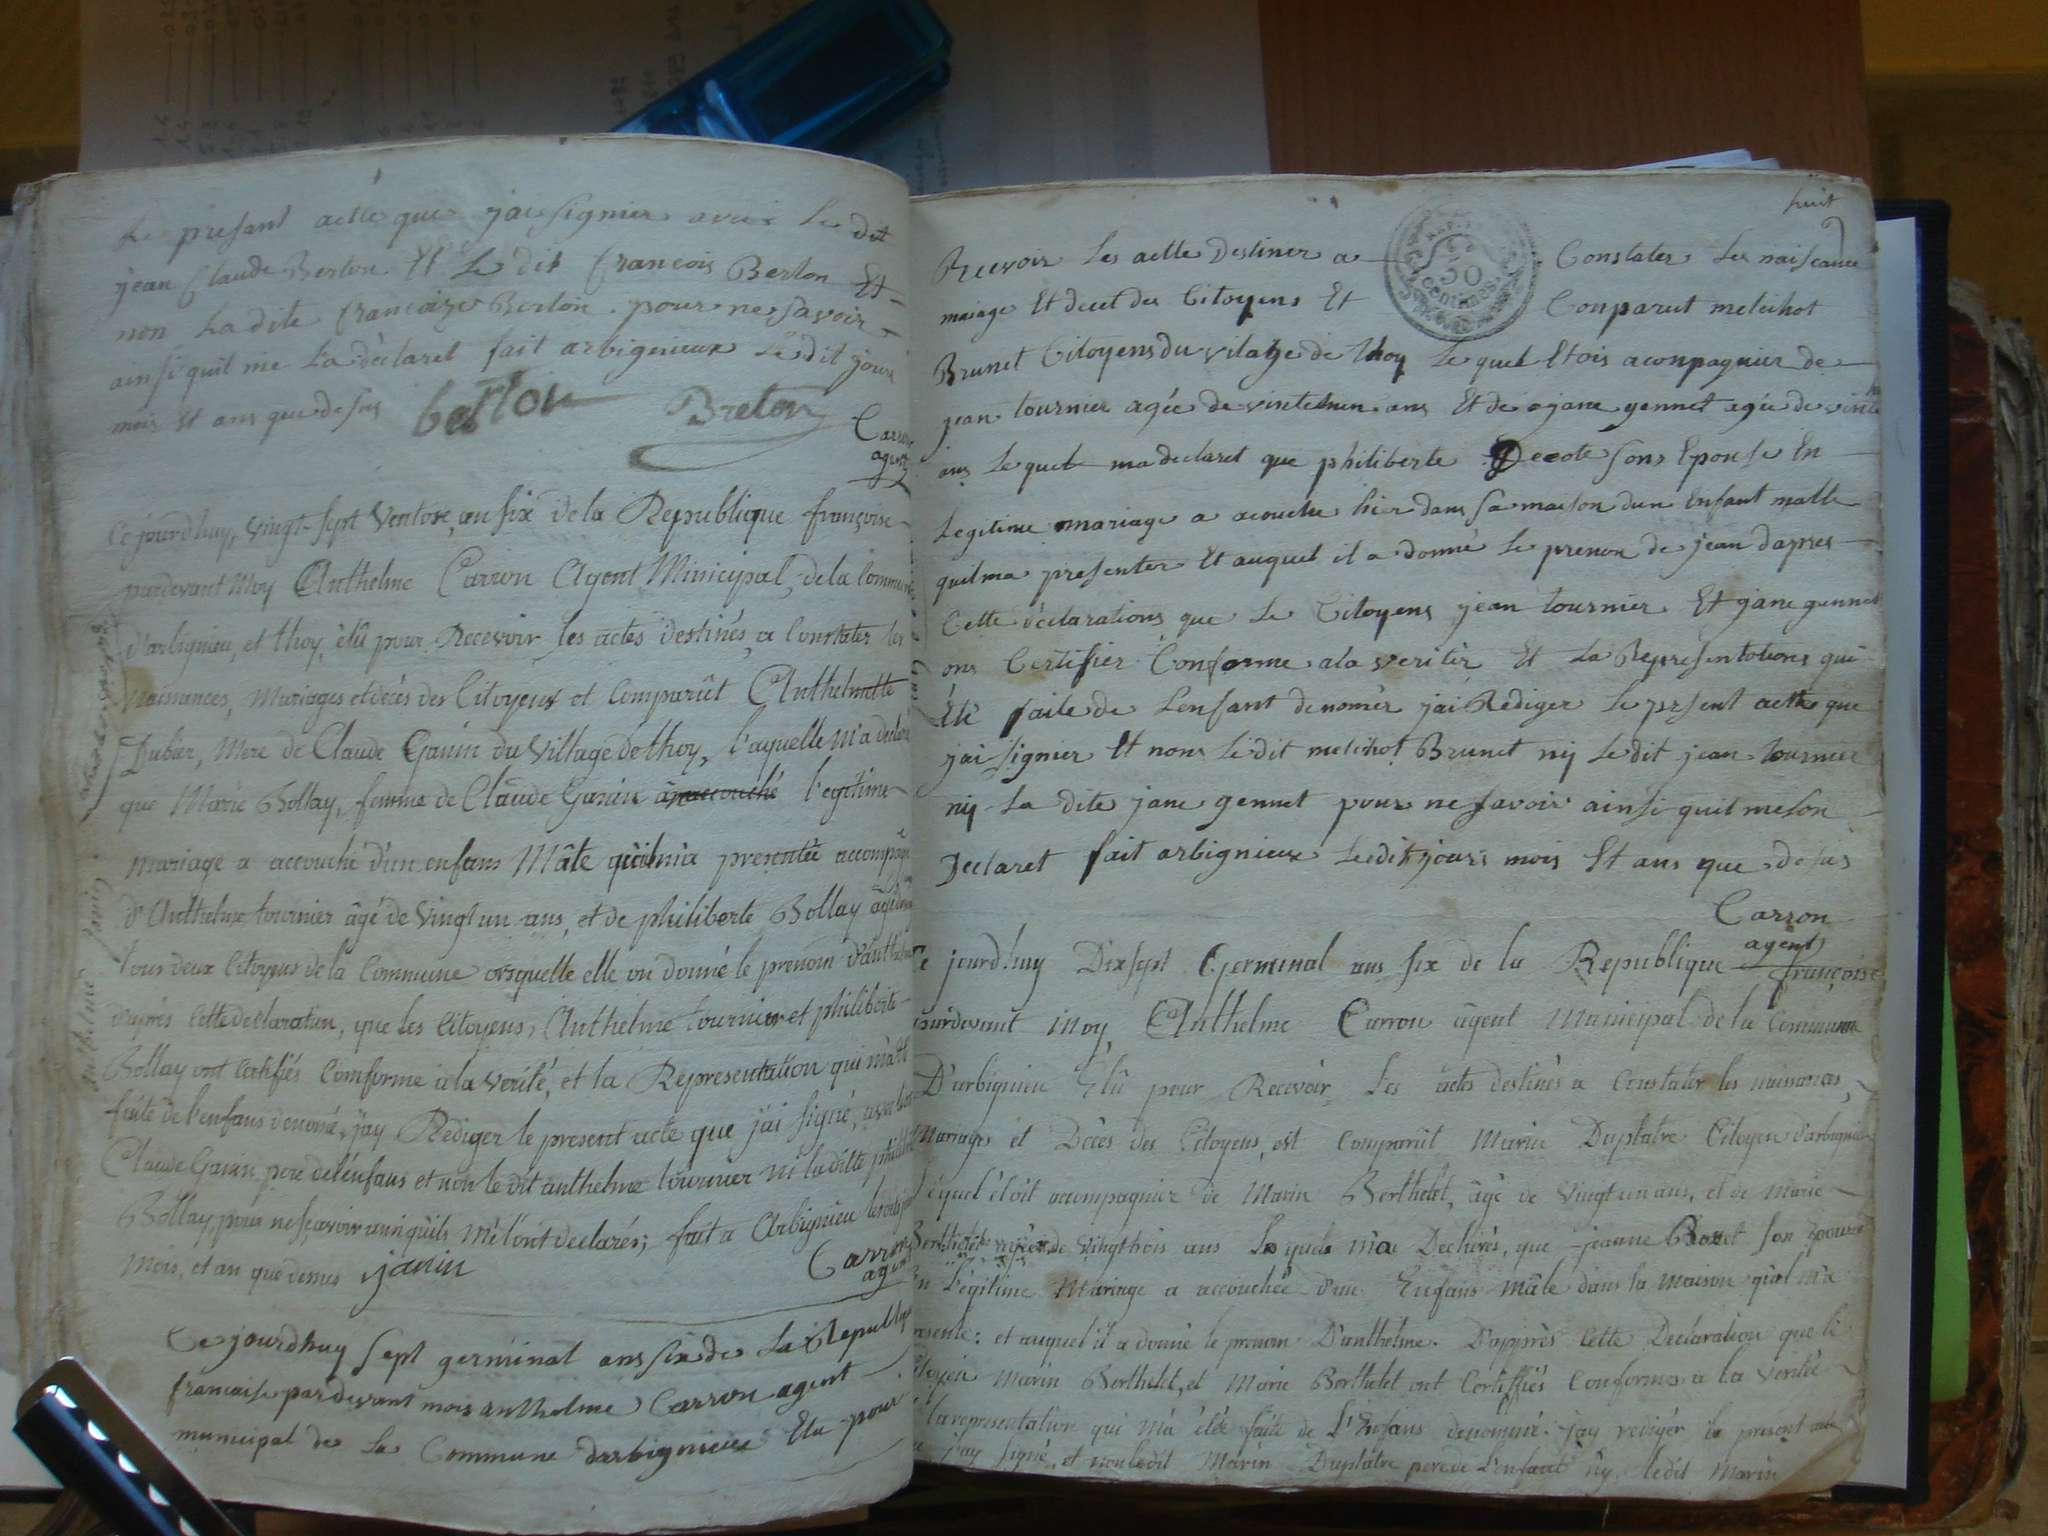 Le presant actte que jai signier avec Le dit
jean Claude Berton Et Le dit francois Berton Et
non La dite francoize Berton pour ne savoir
ainsi quil me La déclaret fait arbignieux Le dit jour
mois Et ans que desus berton Breton
Carron
agent
Ce jourdhuy, Vingt-sept Ventose, an six de la Republique françoise
pardevant Moy Anthelme Carron Agent Municipal, de la Commune
d'arbignieu, et thoy, élû pour Recevoir les actes destinés, a Constater les
naissances, Mariages et décés des Citoyens et Comparût Anthelmette
Dubier, Mere de Claude Ganin du Village de thoy, l'aquelle m'a déclaré
que Marie Bollay, femme de Claude Ganin a accouché l'egitime
Mariage a accouché d'un enfans Mâle qu'il m'a presentée accompagné
d'Anthelme tournier âgé de Vingt un ans, et de philiberte Bollay agée
tous deux Citoyens de la Commune auquelle elle on donné le prenom d'anthelme
d'aprés Cette declaration, que les Citoyens, Anthelme tournier et philiberte
Bollay ont Certifiés Conforme a la Verité, et la Representation qui m'a été
faite de l'enfans denomé, j'ay Rediger le present acte que j'ai signé, avec
Claude Ganin pere de l'enfans et non le dit anthelme tournier ni la ditte philiberte
Bollay, pour ne sçavoir ainsi qu'ils M'e l'ont declarés; fait a Arbignieu
Mois, et an que dessus janin
Carron
agent
Ce jourdhuy sept germinal ans six de La Republique
francaise par devant mois anthelme Carron agent
municipal de La Commune darbignieux Elu pour
anthelme janin
huit
50
centimes
Recevoir Les actte Destiner a Constater Les naiscance
maiage Et decet des Citoyens Et Conparut melcihot
Brunet Citoyens du vilatze de thoy Le quel Etois aconpagnier de
jean tournier agée de vinte hun ans Et de jane gennet agée de vinte
ans Le quel ma declaret que philiberte Decote sons Epouse En
Legitime mariage a acouche hier dans sa maison dun Enfant malle
quil ma presenter Et auquel il a donné Le prenon de jean dapres
Cette déclarations que Le Citoyens jean tournier Et jane gennet
ons Certifier Conforme ala veritér Et La Representations qui
Eté faite de Lenfant denomér jai Rédiger Le prsent actte que
jai signier Et nons Le dit melcihot Brunet nij Le dit jean tournier
nij La dite jane gennet pour ne savoir ainsi quil me son
Declaret fait arbignieux Ledit jours mois Et ans que desus
Carron
agent
Ce jourd'huy Dix sept Germinal ans six de la Republique françoise
pardevant Moy, Anthelme Carron âgent Municipal de la Commune
D'arbignieu Elû pour Recevoir Les actes destinés a Constater les naissances,
Mariages et Décès des Citoyens, est Comparüt Marin Duplatre Citoyen d'arbignieu
Lequel étoit accompagnier de Marin Berthelet, âgé de Vingt un ans, et de Marie
Berthelet agée de Vingt trois ans Le quels M'a Declarés, que jeanne Bozet son Epouse
En Légitime Mariage a accouchée d'un Enfans Mâle dans la Maison qu'il m'a
presenté: et auquel il a donné le prenom D'anthelme. D'apprès Cette Declaration que le
Citoyen Marin Berthelet, et Marie Berthelet ont Certiffiés Conformes a la Verité
la representation qui M'a étée faite de L'Enfans denommé. j'ay rediger le present acte
que j'ay signé, et non ledit Marin Duplâtre pere de L'enfant ny ledit Marin